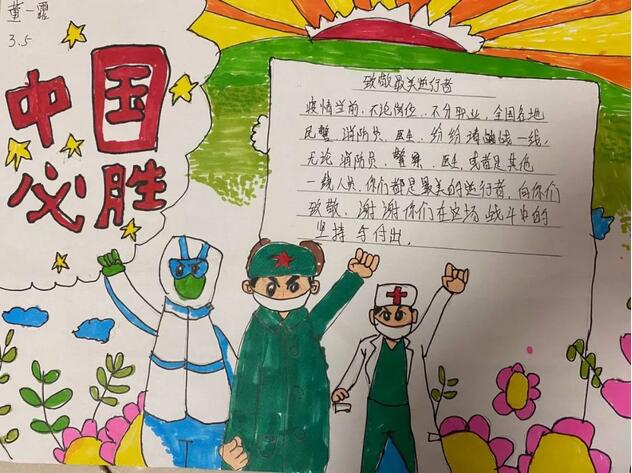 董一露
3.5
中国
必胜
致敬最美逆行者
疫情当前,不论岗位,不分职业,全国各地
民警、消防员、医生,纷纷请战一线,
无论消防员、警察、医生,或者是其他
一线人员,你们都是最美的逆行者,向你们
致敬,谢谢你们在这场战斗中的
坚持与付出。